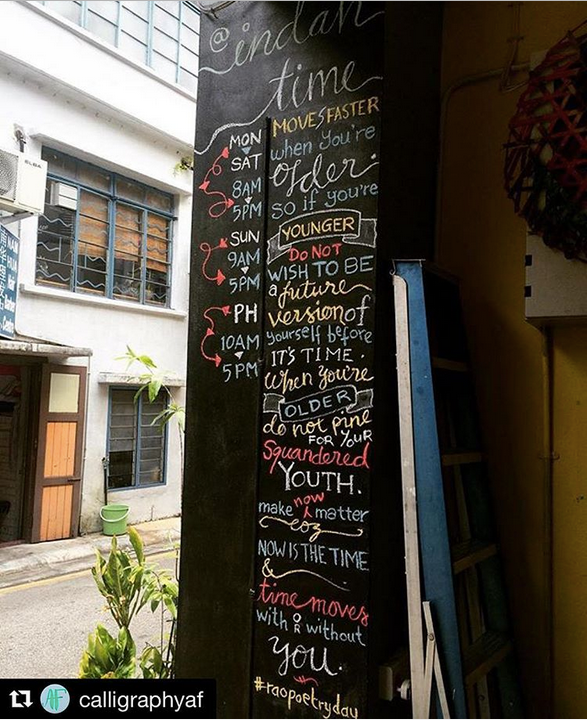 @indah
time
MON
SAT
8AM
5PM
SUN
9AM
5PM
PH
10AM
5PM
MOVES FASTER
when you're
older.
so if you're
YOUNGER
DO NOT
WISH TO BE
a future
version of
yourself before
IT'S TIME.
when you're
OLDER
do not pine
FOR YOUR
Squandered
YOUTH.
make now matter
coz
NOW IS THE TIME
&
time moves
with OR without
you.
#raopoetryday
ELBA
calligraphyaf